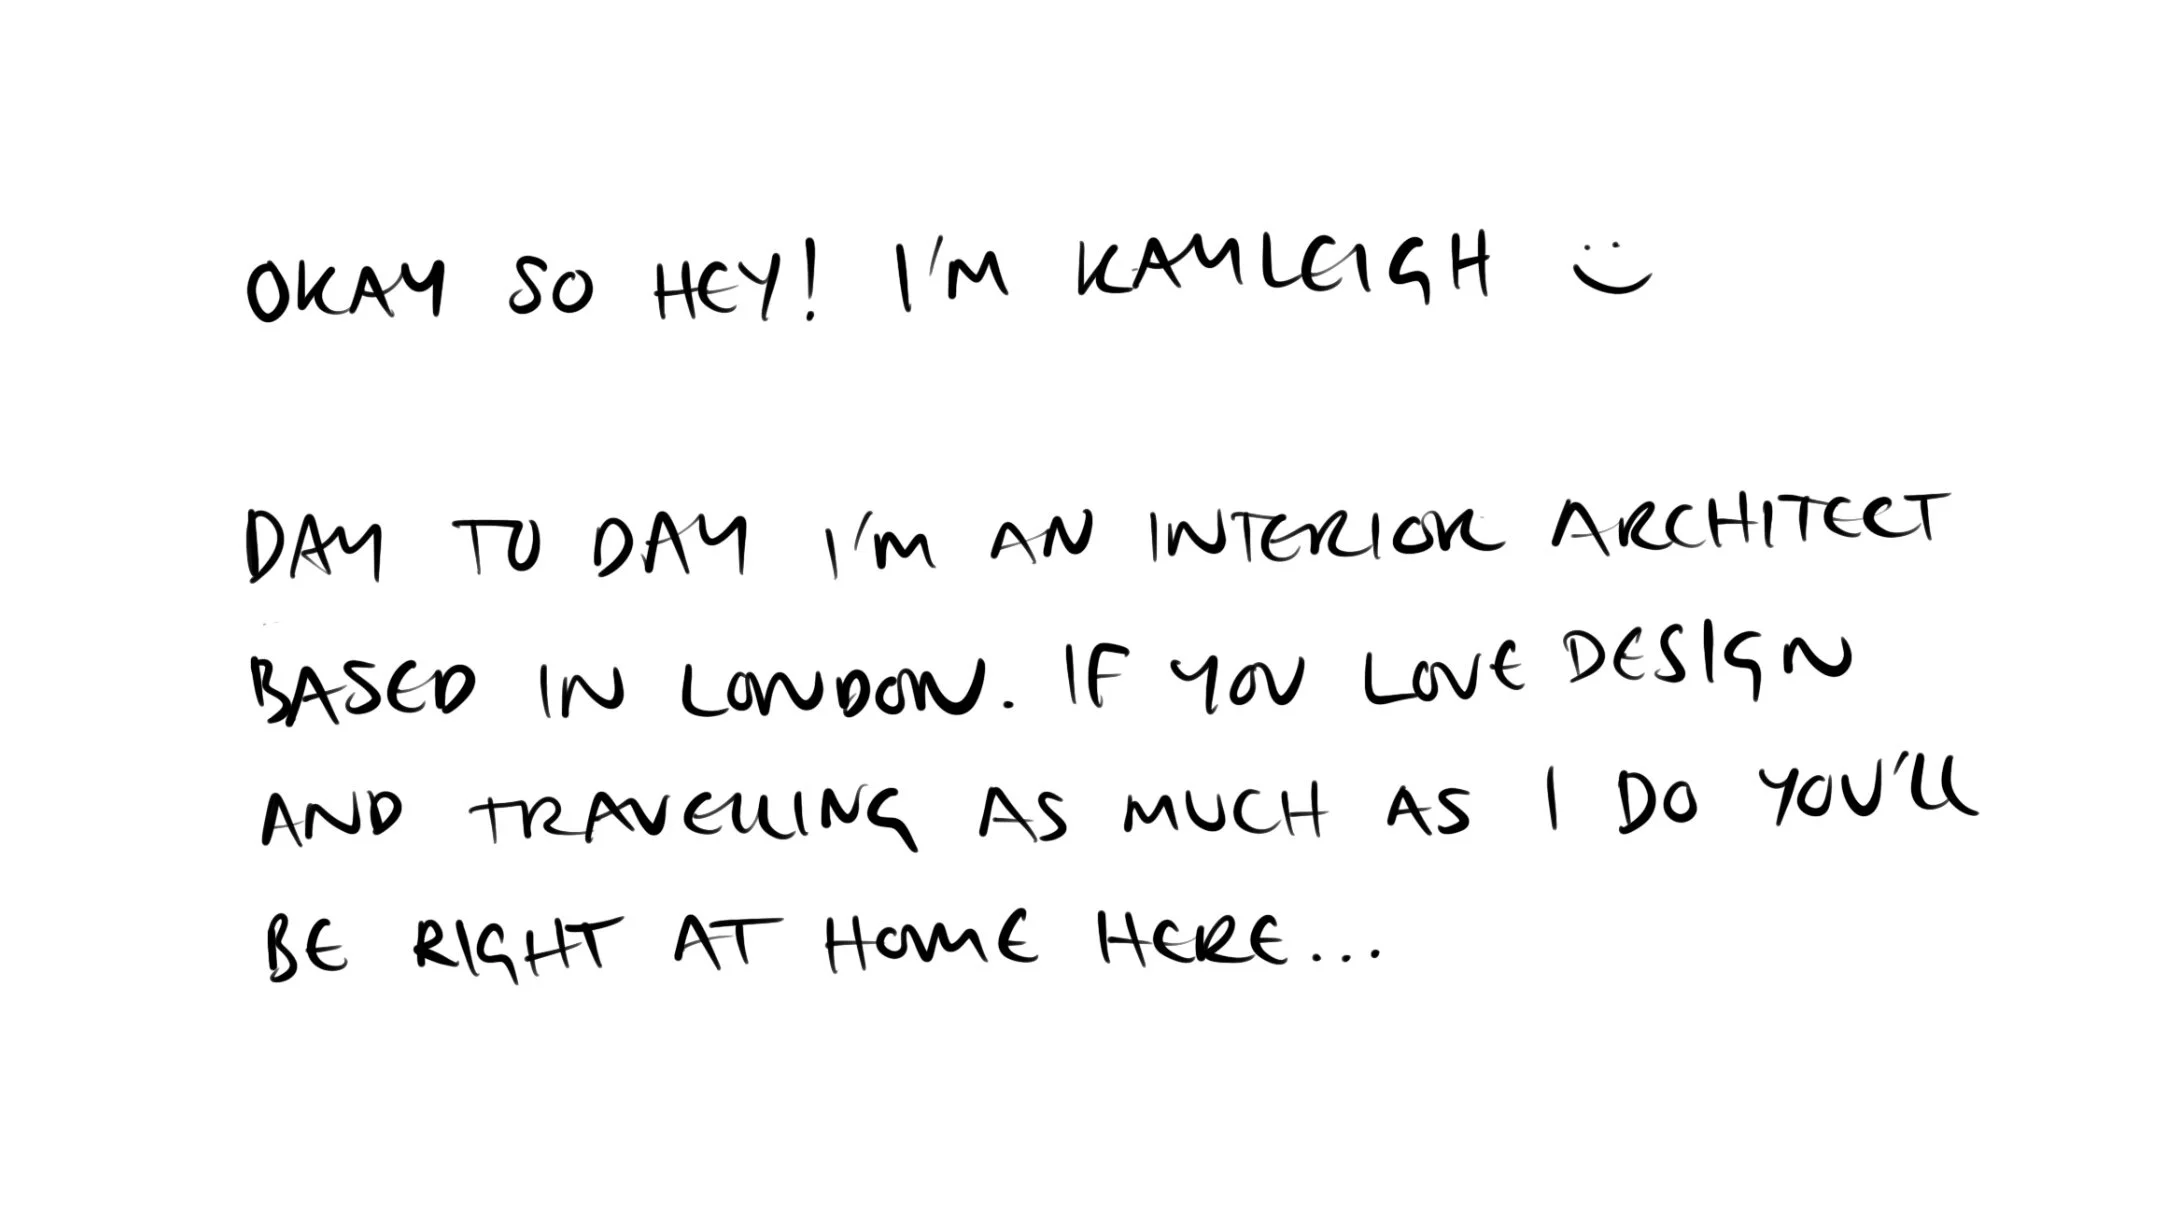 OKAY SO HEY! I'M KAYLEIGH :)
DAY TO DAY I'M AN INTERIOR ARCHITECT
BASED IN LONDON. IF YOU LOVE DESIGN
AND TRAVELLING AS MUCH AS I DO YOU'LL
BE RIGHT AT HOME HERE...